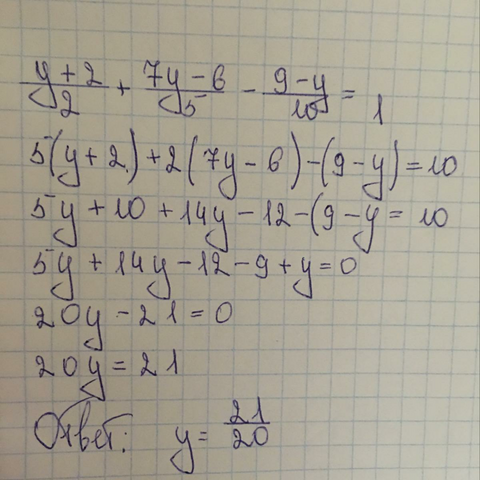 (y+2)/2 + (7y-6)/5 - (9-y)/10 = 1
5(y+2)+2(7y-6)-(9-y)=10
5y+10+14y-12-(9-y=10
5y+14y-12-9+y=0
20y-21=0
20y=21
Ответ: y=21/20